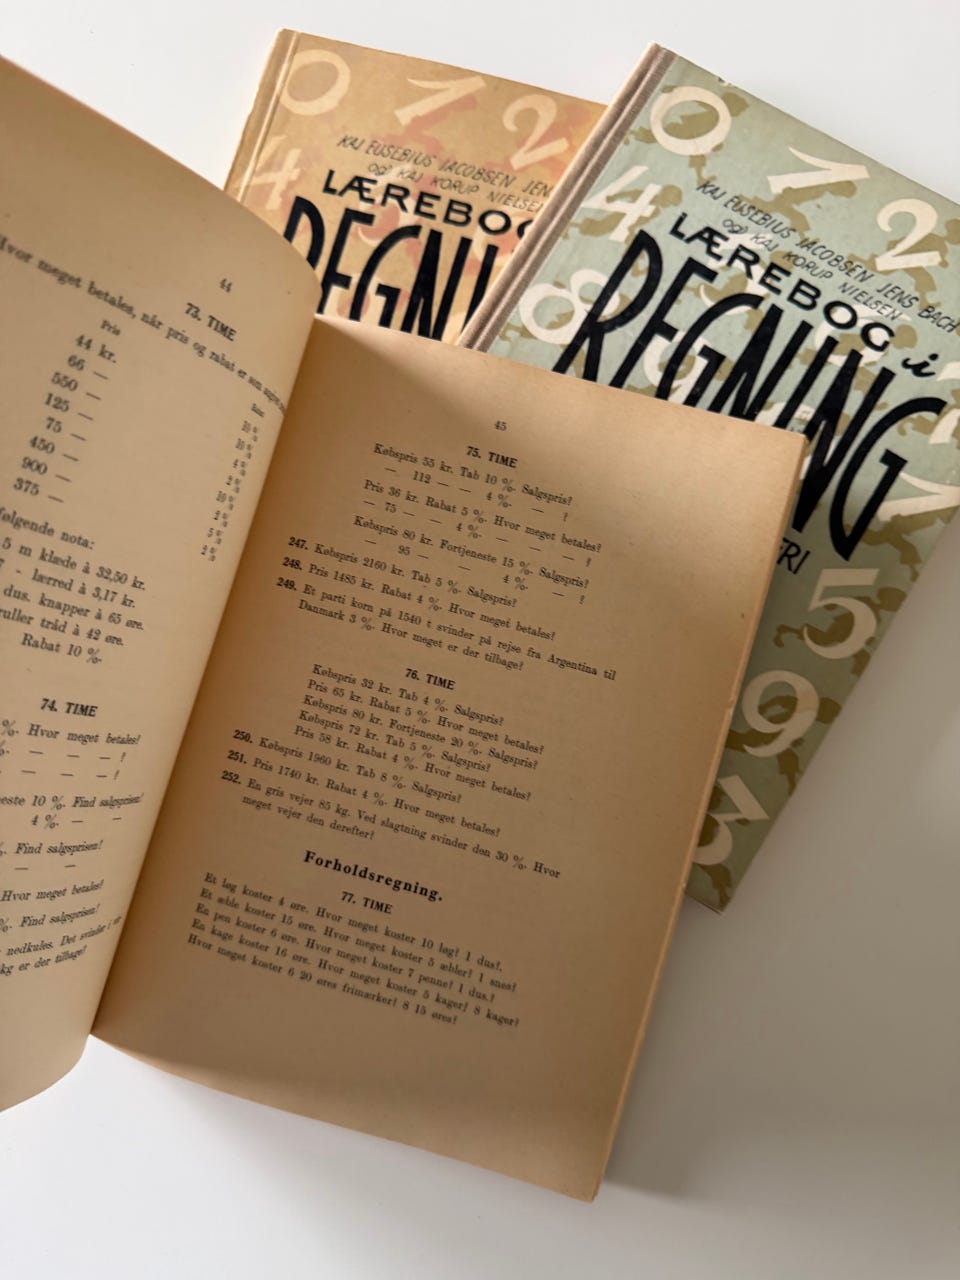 KAJ EUSEBIUS JACOBSEN JEN
og KAJ KORUP NIELSEN
LÆREBOG
REGNI
KAJ EUSEBIUS JACOBSEN JENS BACH
og KAJ KORUP NIELSEN
LÆREBOG i
REGNING
0 1 2
4
8
5
9
3
44
73. TIME
Hvor meget betales, når pris og rabat er som
Pris
44 kr. 10 %
66 — 10 %
550 — 4 %
125 — 2 %
75 — 10 %
450 — 2 %
900 — 5 %
375 — 2 %
følgende nota:
5 m klæde à 32,50 kr.
7 - lærred à 3,17 kr.
dus. knapper à 65 øre.
ruller tråd à 42 øre.
Rabat 10 %.
74. TIME
%. Hvor meget betales?
%. — — — ?
— — — ?
neste 10 %. Find salgsprisen!
4 %. — —
%. Find salgsprisen!
— — —
Hvor meget betales?
%. Find salgsprisen!
nedkules. Det svinder i
kg er der tilbage?
45
75. TIME
Købspris 55 kr. Tab 10 %. Salgspris?
— 112 — — 4 %. — ?
Pris 36 kr. Rabat 5 %. Hvor meget betales?
— 75 — — 4 %. — — — ?
Købspris 80 kr. Fortjeneste 15 %. Salgspris?
— 95 — — 4 %. — ?
247. Købspris 2160 kr. Tab 5 %. Salgspris?
248. Pris 1485 kr. Rabat 4 %. Hvor meget betales?
249. Et parti korn på 1540 t svinder på rejse fra Argentina til
Danmark 3 %. Hvor meget er der tilbage?
76. TIME
Købspris 32 kr. Tab 4 %. Salgspris?
Pris 65 kr. Rabat 5 %. Hvor meget betales?
Købspris 80 kr. Fortjeneste 20 %. Salgspris?
Købspris 72 kr. Tab 5 %. Salgspris?
Pris 58 kr. Rabat 4 %. Hvor meget betales?
250. Købspris 1960 kr. Tab 8 %. Salgspris?
251. Pris 1740 kr. Rabat 4 %. Hvor meget betales?
252. En gris vejer 85 kg. Ved slagtning svinder den 30 %. Hvor
meget vejer den derefter?
Forholdsregning.
77. TIME
Et løg koster 4 øre. Hvor meget koster 10 løg? 1 dus?.
Et æble koster 15 øre. Hvor meget koster 5 æbler? 1 snes?
En pen koster 6 øre. Hvor meget koster 7 penne? 1 dus.?
En kage koster 16 øre. Hvor meget koster 5 kager? 8 kager?
Hvor meget koster 6 20 øres frimærker? 8 15 øres?